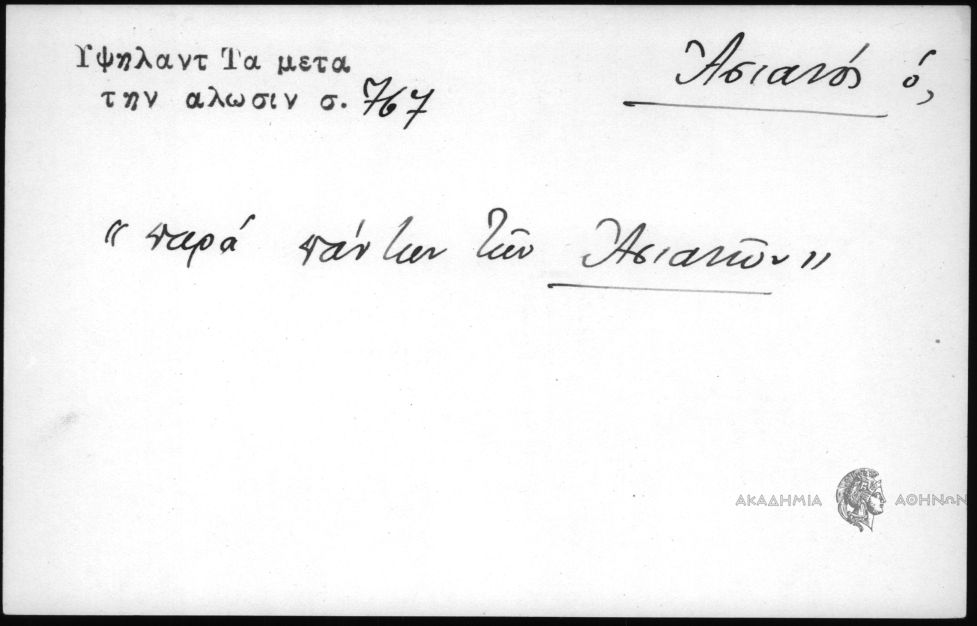 Υψηλαντ Τα μετα
την αλωσιν σ. 767
Ἀσιανός ὁ,
“ παρά πάντων τῶν Ἀσιανῶν ”
ΑΚΑΔΗΜΙΑ ΑΘΗΝΩΝ